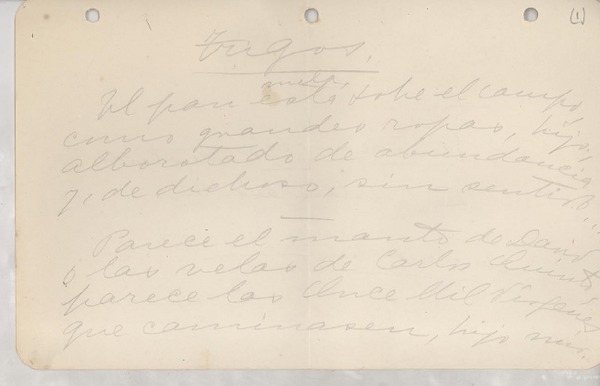 (1)
Trigos.
El pan está sobre el campo,
como grandes ropas, hijo,
alborotado de abundancia
y, de dichoso, sin sentido...
Parece el manto de David
o las velas de Carlos Quinto
parece las Once Mil Vírgenes
que caminasen, hijo mío.